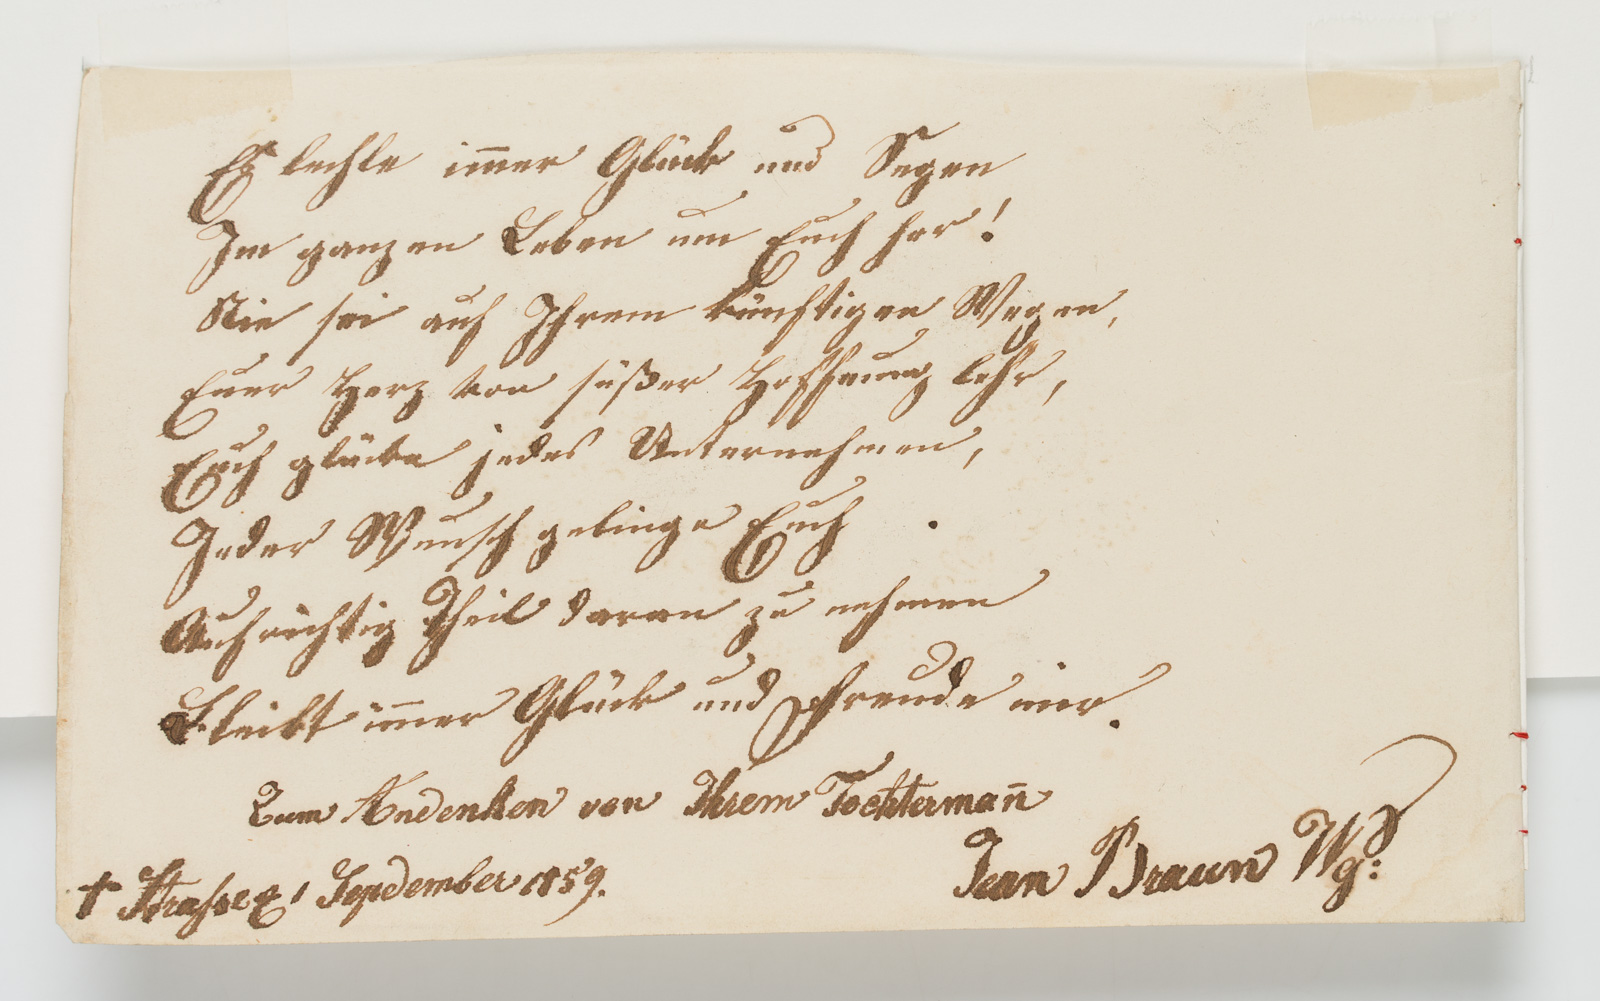 Es lechle im̄er Glück und Segen
Im ganzen Leben um Euch her!
Nie sei auf Ihrem künftigen Wegen,
Euer Herz von süßer Hoffnung lehr,
Euch glücke jedes Unternehmen,
Jeder Wunsch gelinge Euch
Aufrichtig Theil daran zu nehmen
Bleibt im̄er Glück und Freude mir.
Zum Andenken von Ihrem Tochterman̄
Jean Braun Wg:
September 1859.